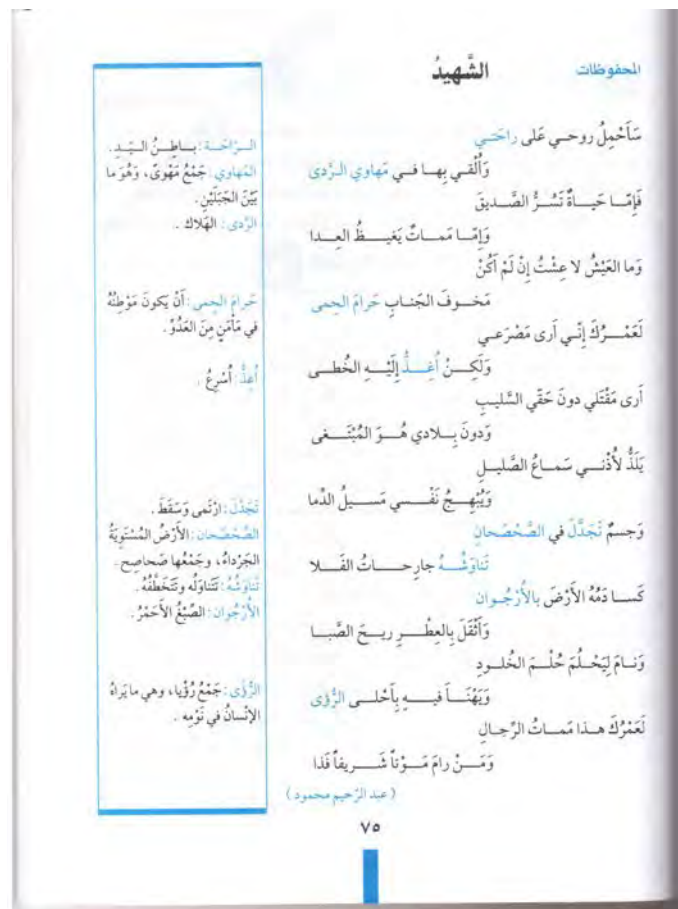 المحفوظات
الشَّهيدُ
سَأَحْمِلُ روحــي عَلى راحَتــي
وَأُلْقــي بِهــا فــي مَهاوي الـرَّدى
فَإِمّــا حَيــاةٌ تَسُــرُّ الصَّــديقَ
وَإِمّــا مَمــاتٌ يَغيــظُ العِــدا
وَما العَيْشُ لا عِشْتُ إِنْ لَمْ أَكُنْ
مَخــوفَ الجَنــابِ حَرامَ الحِمى
لَعَمْــرُكَ إِنّــي أَرى مَصْرَعــي
وَلَكِــنْ أَغِــذُّ إِلَيْــهِ الخُطــى
أَرى مَقْتَلي دونَ حَقّي السَّليبِ
وَدونَ بِــلادي هُــوَ المُبْتَــغى
يَلَذُّ لأُذْنــي سَمــاعُ الصَّليــلِ
وَيُبْهِــجُ نَفْــسي مَسيــلُ الدِّما
وَجسمٌ تَجَدَّلَ في الصَّحْصَحانِ
تَناوَشُــهُ جارِحــاتُ الفَــلا
كَســا دَمُهُ الأَرْضَ بالأُرْجُــوان
وَأَثْقَلَ بِالعِطْــرِ ريــحَ الصَّبــا
وَنــامَ لِيَحْلُــمَ حُلْــمَ الخُلــودِ
وَيَهْنَــأَ فيــهِ بِأَحْلــى الرُّؤى
لَعَمْرُكَ هــذا مَمــاتُ الرِّجــالِ
وَمَــنْ رامَ مَــوْتاً شَــريفاً فَذا
(عبد الرّحيم محمود)
الــرّاحَــة: بــاطِــنُ الــيَــدِ.
المَهاوي: جَمْعُ مَهْوىً، وَهُوَ ما
بَيْنَ الجَبَلَيْنِ.
الرَّدى: الهَلاك ..
حَرامَ الحِمى: أَنْ يَكونَ مَوْطِنُهُ
في مَأْمَنٍ مِنَ العَدُوِّ.
أَغِذُّ: أُسْرِعُ .
تَجَدَّلَ: ارْتَمى وَسَقَطَ.
الصَّحْصَحان: الأَرْضُ المُسْتَوِيَةُ
الجَرْداءُ، وجَمْعُها صَحاصِح.
تَناوَشُهُ: تَتَناوَلُه وتَتَخَطَّفُهُ.
الأُرْجُوان: الصِّبْغُ الأَحْمَرُ.
الرُّؤى: جَمْعُ رُؤْيا، وهي ما يَراهُ
الإنْسانُ في نَوْمِه .
٧٥